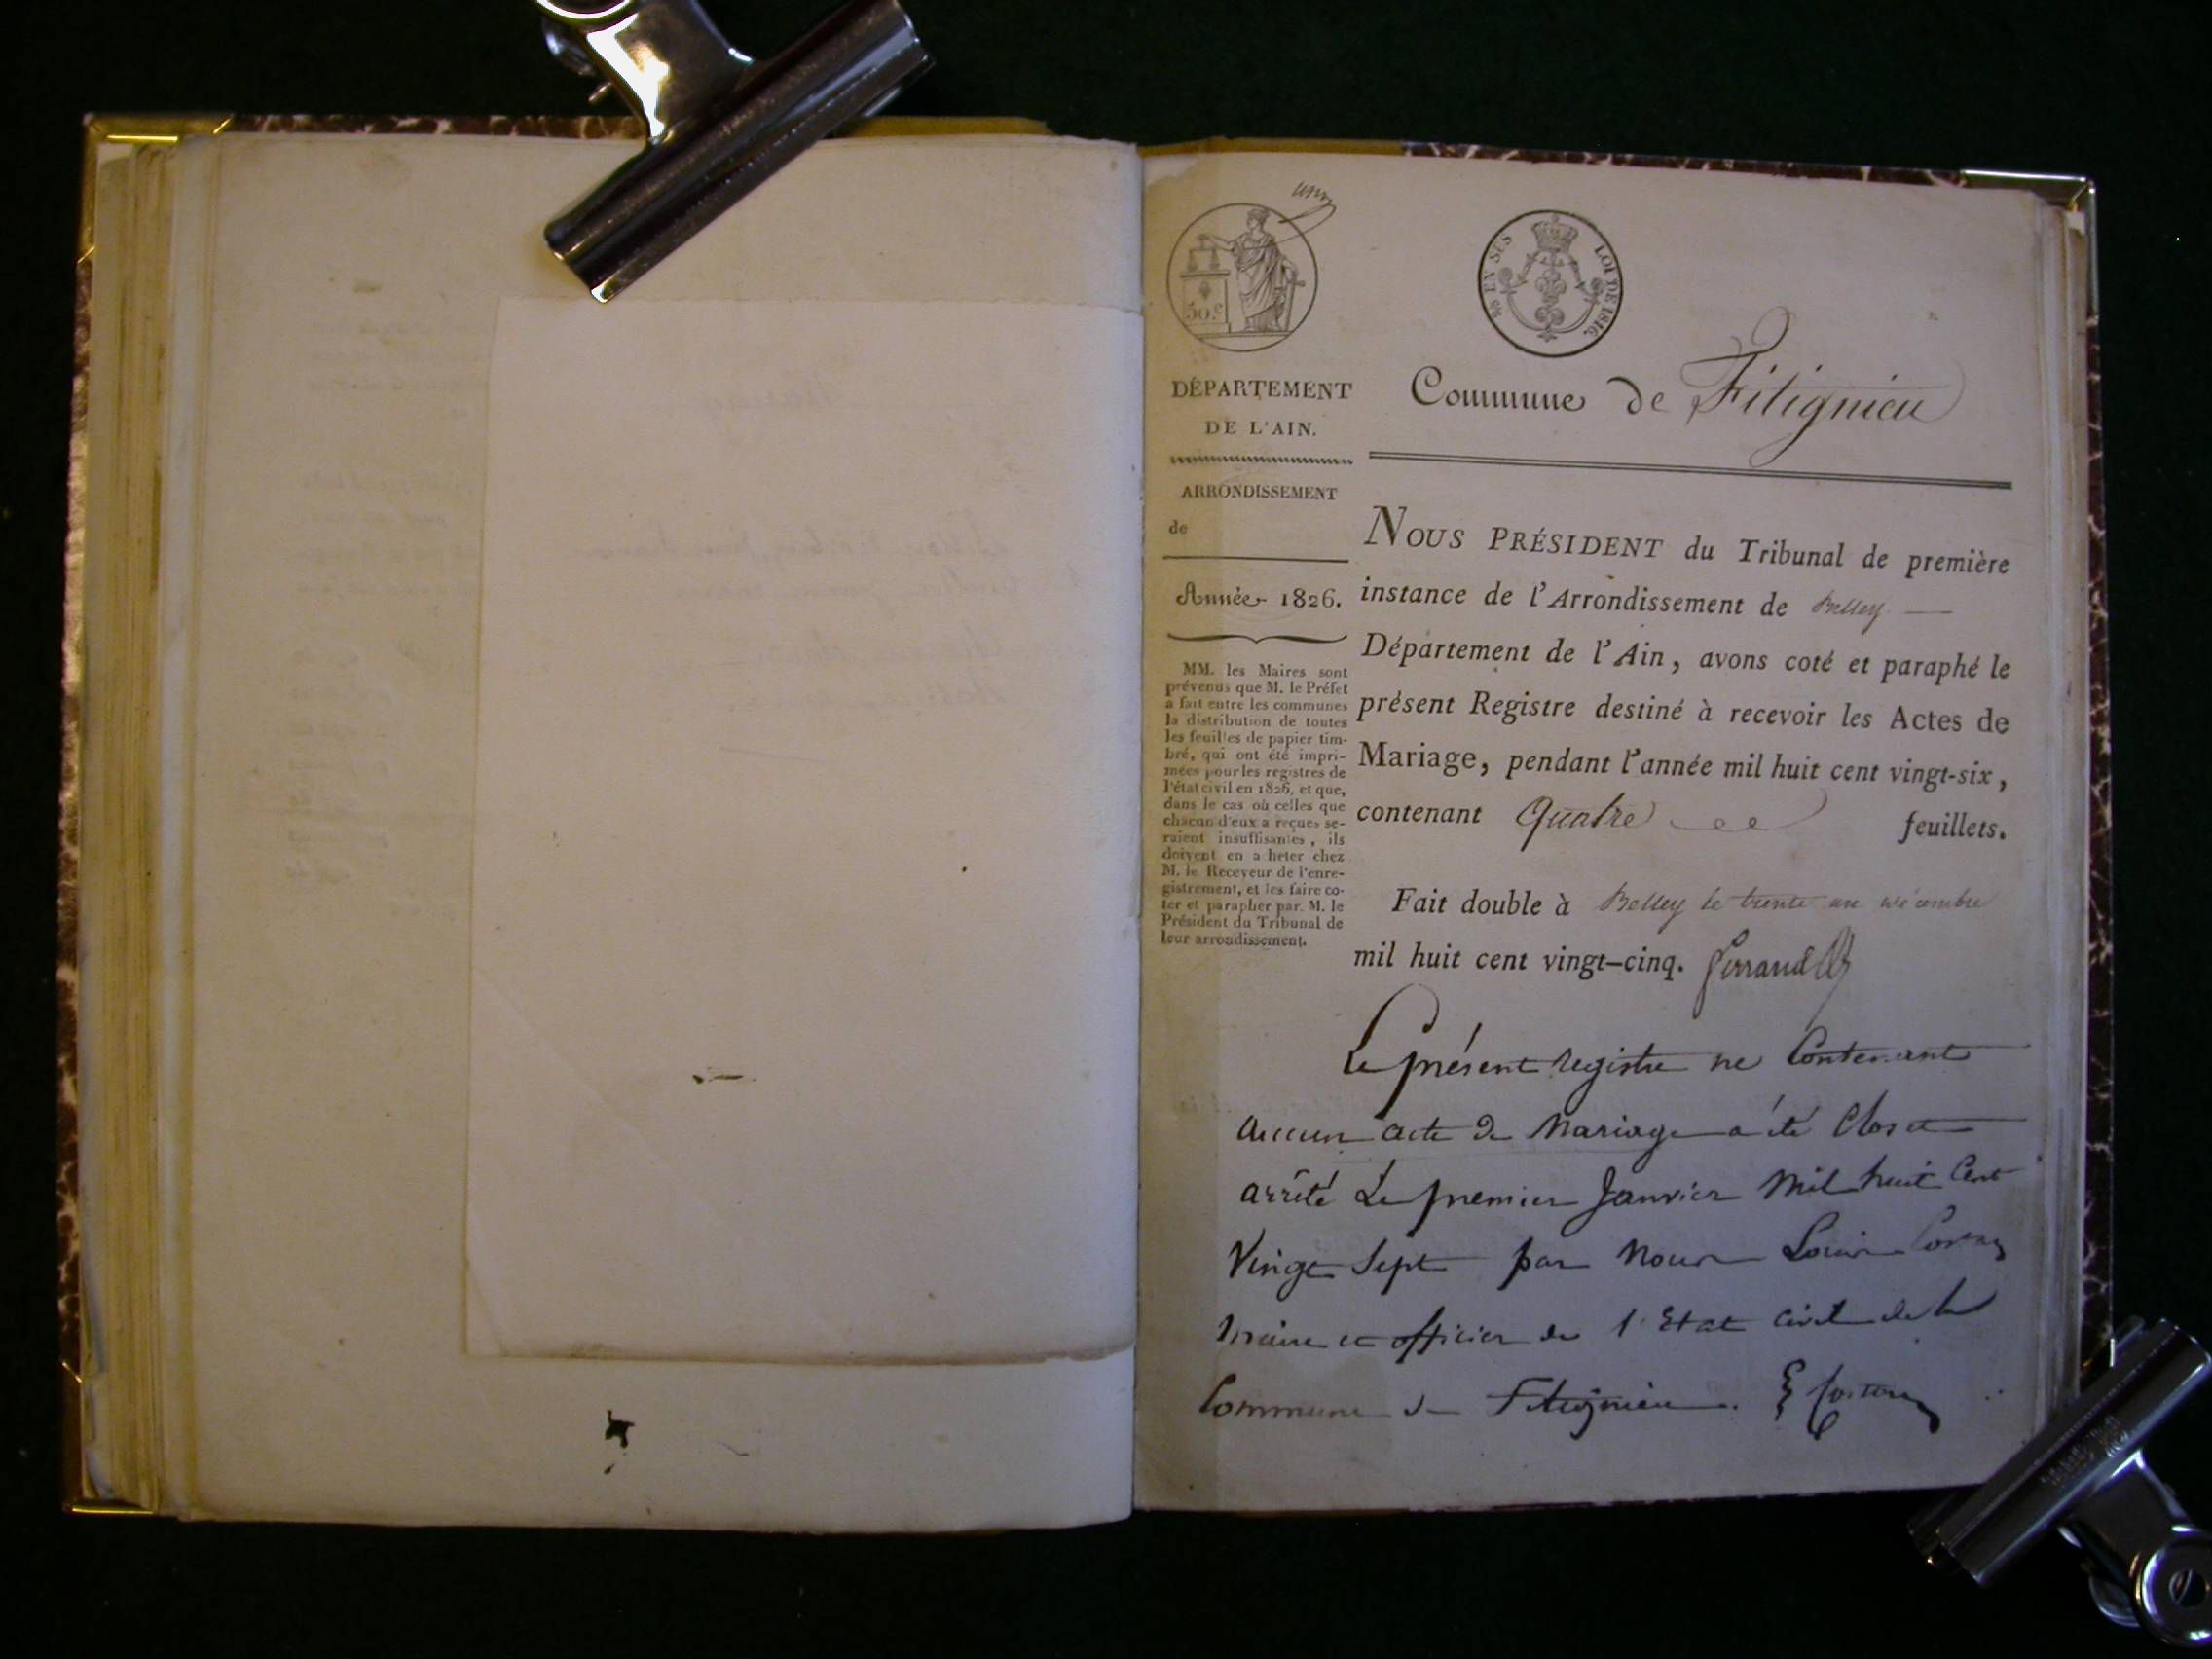 un
50.c
¼ EN SUS LOI DE 1816.
DÉPARTEMENT
DE L'AIN.
ARRONDISSEMENT
de
Année 1826.
MM. les Maires sont
prévenus que M. le Préfet
a fait entre les communes
la distribution de toutes
les feuilles de papier tim-
bré, qui ont été impri-
mées pour les registres de
l'état civil en 1826, et que,
dans le cas où celles que
chacun d'eux a reçues se-
raient insuffisantes, ils
doivent en a heter chez
M. le Receveur de l'enre-
gistrement, et les faire co-
ter et parapher par M. le
Président du Tribunal de
leur arrondissement.
Commune de Fitignieu
NOUS PRÉSIDENT du Tribunal de première
instance de l'Arrondissement de Belley
Département de l'Ain, avons coté et paraphé le
présent Registre destiné à recevoir les Actes de
Mariage, pendant l'année mil huit cent vingt-six,
contenant Quatre feuillets.
Fait double à Belley le trente un décembre
mil huit cent vingt-cinq.
Le présent registre ne Contenant
aucun acte de Mariage a été Clos et
arrêté Le premier Janvier Mil huit Cent
Vingt Sept par Nous Louis
Maire et officier de l'Etat civil de la
Commune de Fitignieu.